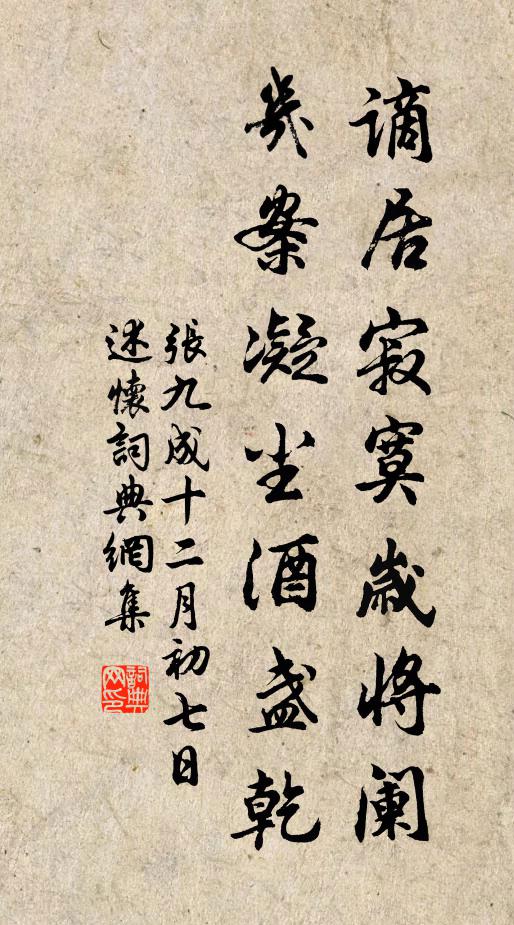 謫居寂寞歲將阑
幾案凝尘酒盏乾
張九成十二月初七日
述懷詞典網集
詞典网印